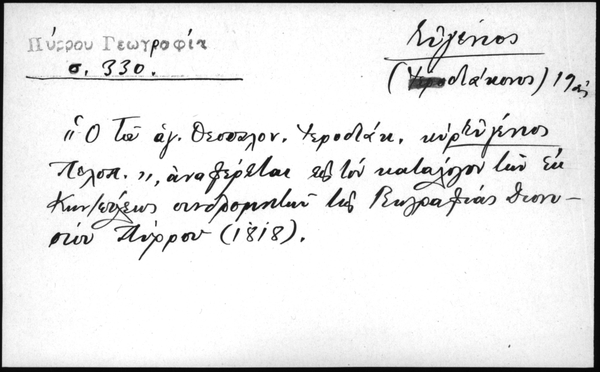 Πύρρου Γεωγραφία
σ. 330.
Εὐγένιος
(Ἱεροδιάκονος) 19ος
"Ὁ τοῦ ἁγ. Θεσσαλον. Ἱεροδιάκ. κύρ Εὐγένιος
Πελοπ.", ἀναφέρεται εἰς τόν κατάλογον τῶν ἐν
Κων/πόλεως συνδρομητῶν τῆς Γεωγραφίας Διονυ-
σίου Πύρρου (1818).